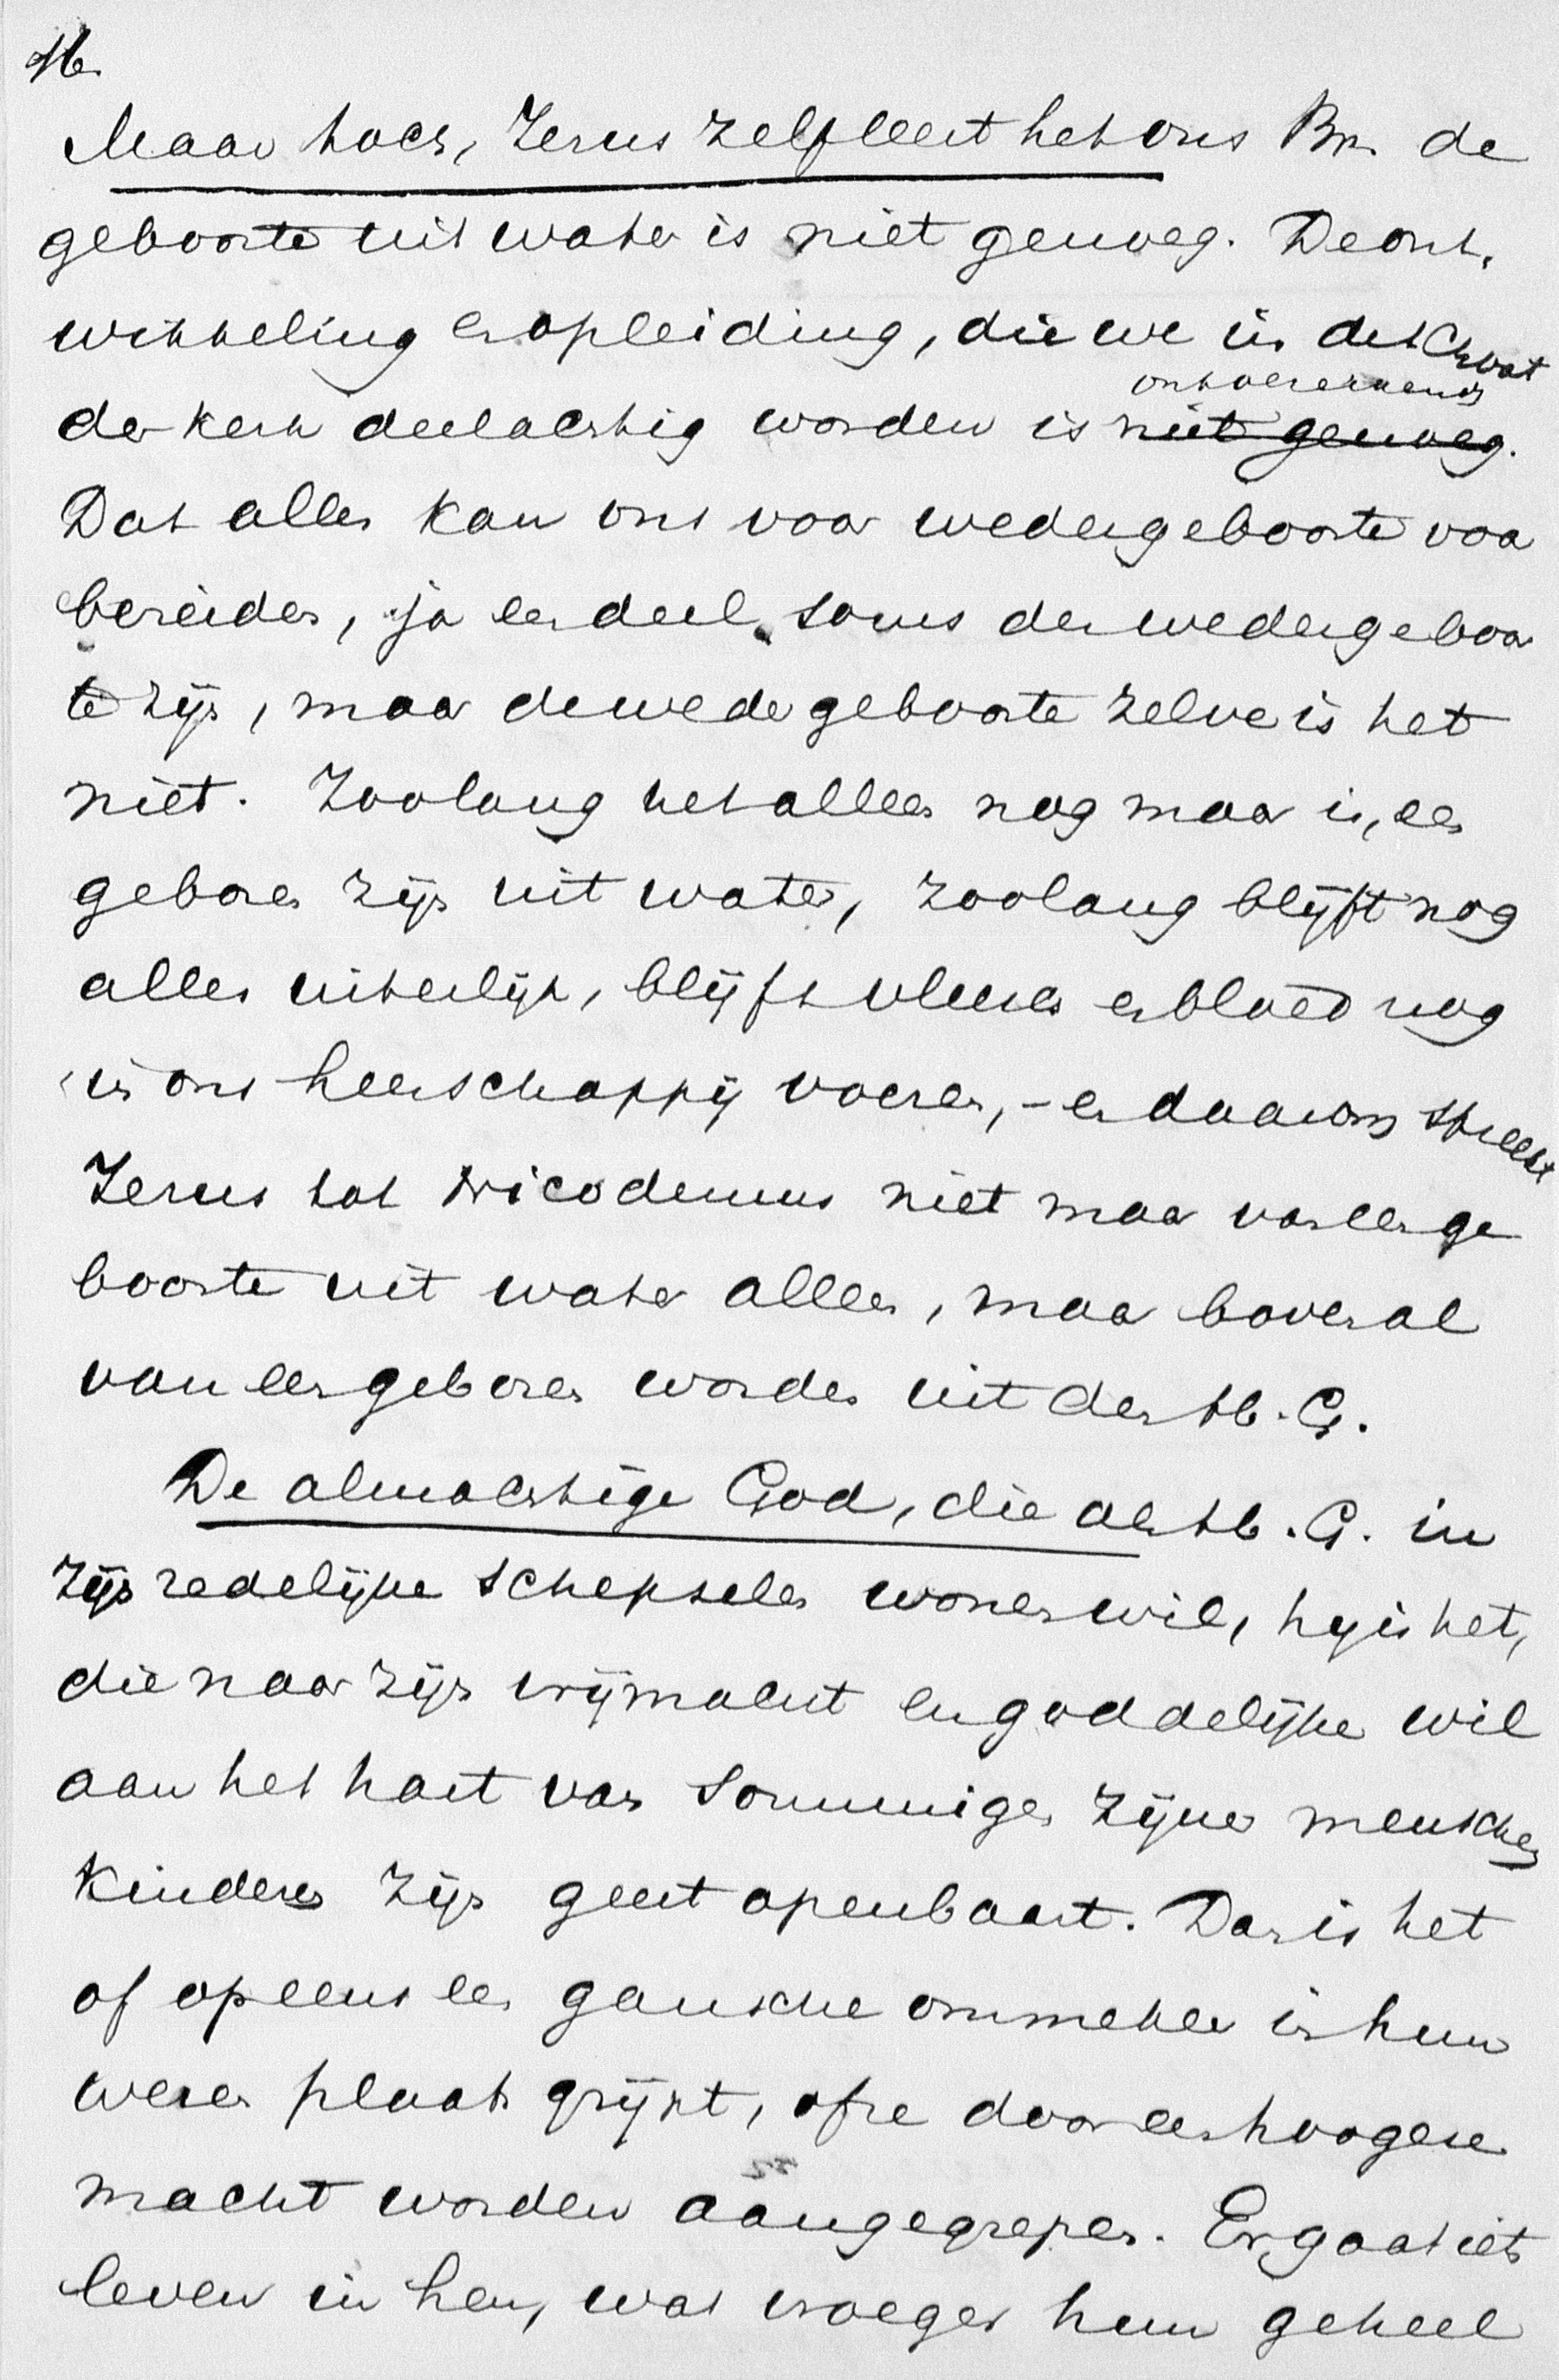 16.
Maar toch, Jezus zelf leert het ons Br. de
geboorte uit water is niet genoeg. De ont-
wikkeling en opleiding, die we in den schoot
ontoereikend
der kerk deelachtig worden is niet genoeg.
Dat alles kan ons voor wedergeboorte voor
bereiden, ja een deel soms der wedergeboor
te zijn, maar de wedergeboorte zelve is het
niet. Zoolang het alleen nog maar is, een
geboren zijn uit water, zoolang blijft nog
alles uiterlijk, blijft vleesch en bloed nog
in ons heerschappij voeren, – en daarom spreekt
Jezus tot Nicodemus niet maar van een ge
boorte uit water alleen, maar bovenal
van een geboren worden uit den H. G.
De almachtige God, die als H. G. in
zijn redelijke schepselen wonen wil, hij is het,
die naar zijn vrijmacht en goddelijke wil
aan het hart van sommige zijner menschen
kinderen zijn geest openbaart. Dan is het
of opeens een gansche ommekeer in hun
wezen plaats grijpt, of ze door een hoogere
macht worden aangegrepen. Er gaat iets
leven in hen, wat vroeger hun geheel